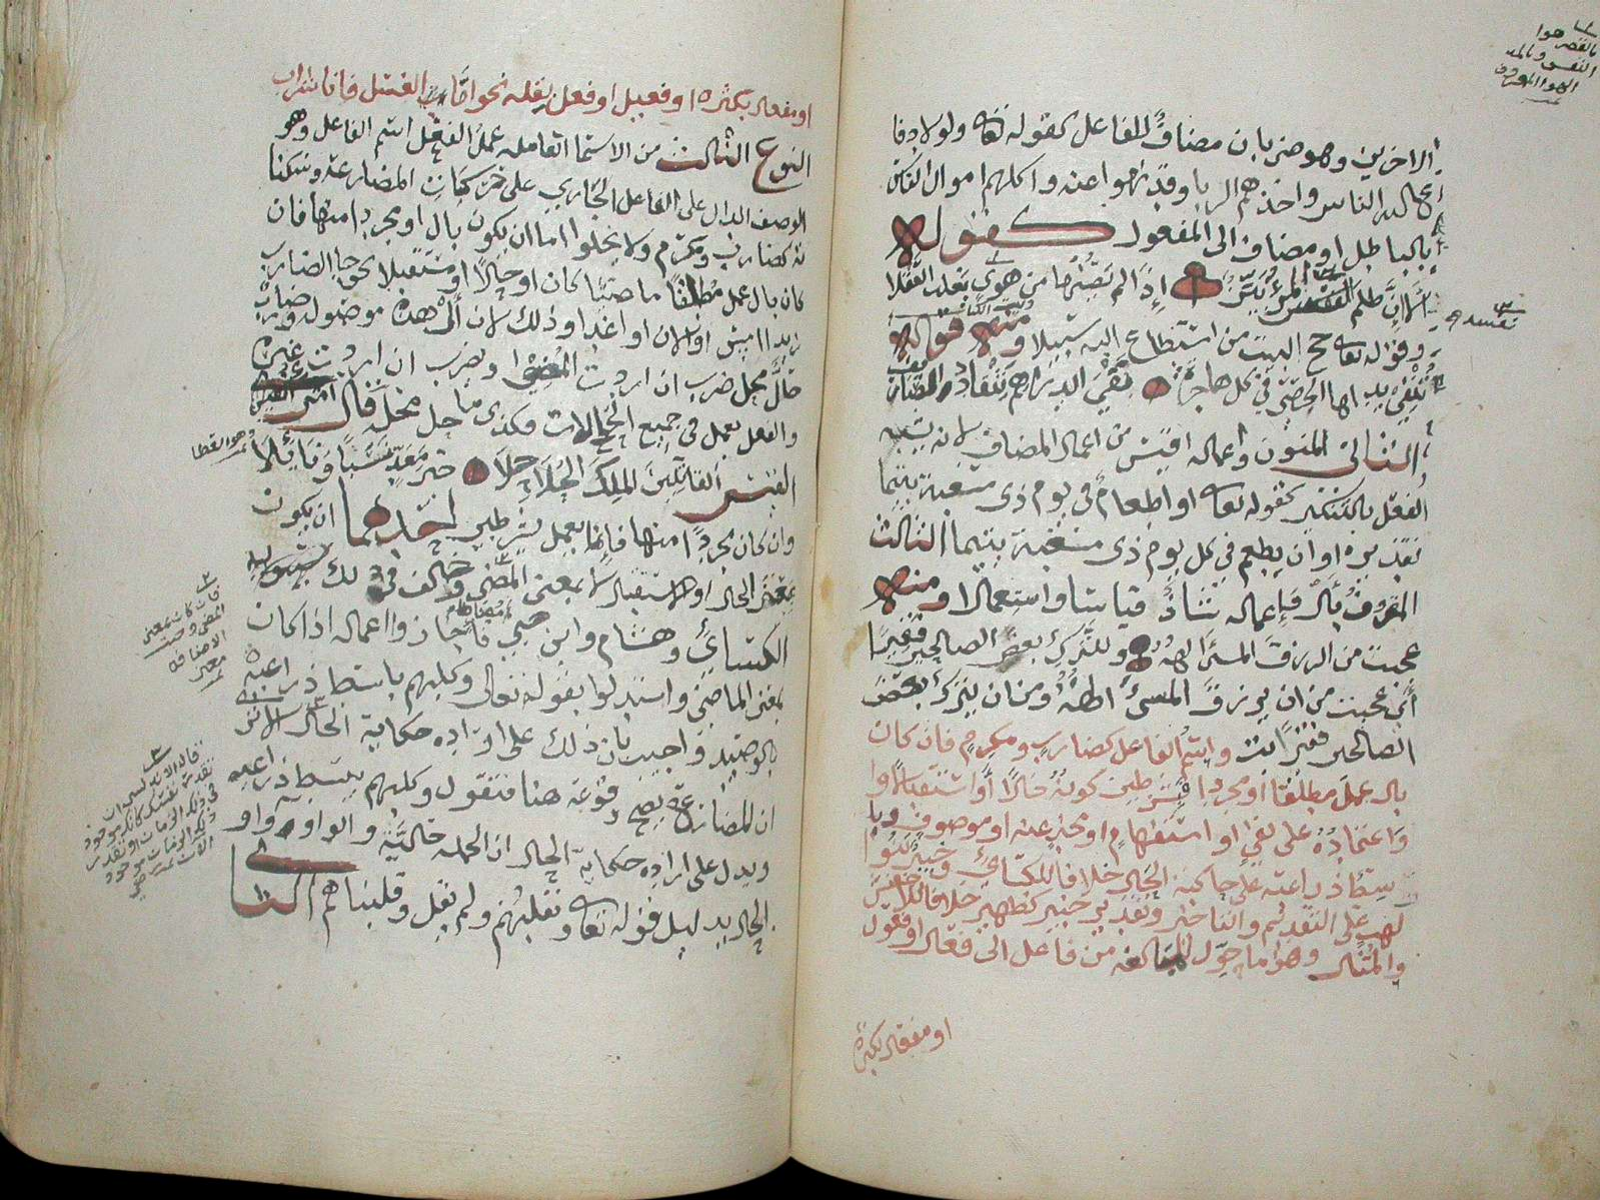 بالقصر هوا
النفس وبالمد
الهوا المعروف
الاخرين وهو ضربان مضاف للفاعل كقوله تعالى ولولا دفا
ع الله الناس واخذهم الربا وقد نهوا عنه واكلهم اموال الناس
بالباطل او مضاف الى المفعول كقوله
الا ان ظلم نفسه المرء بين اذا لم يصنها من هوى يغلب العقلا
نفسه
وقوله تعالى حج البيت من استطاع اليه سبيلا ومنه قوله
تنفي يداها الحصى في كل هاجرة نفي الدراهم تنقاد الصياريف
الثاني المنون واعماله اقيس من اعمال المضاف لانه يشبه
الفعل بالتنكير كقوله تعالى او اطعام في يوم ذي مسغبة يتيما
تقديره او ان يطعم في يوم ذي مسغبة يتيما الثالث
المعروف بأل فاعماله شاذ قياسا واستعمالا ومنه
عجبت من الرزق المسئ الهه وللترك بعض الصالحين فقيرا
أي عجبت من ان رزق المسئ الهه ومن ان يترك بعض
الصالحين فقيرا واسم الفاعل كضارب ومكرم فان كان
بال عمل مطلقا او مجردا فبشرطين كونه حالا أو استقبالا وا
واعتماده على نفي او استفهام او مخبر عنه او موصوف وبا
سط ذراعيه على حكاية الحال خلافا للكسائي وخبير بنوا
لهب على التقديم والتاخير وتقديره خبير كظهير خلافا للاخفش
والمثال وهو ما حول للمبالغة من فاعل الى فعال او فعول
او مفعال بكثرة
او مفعال بكثرة او فعيل او فعل بقلة نحو اما العسل فانا شراب
النوع الثالث من الاسما العاملة عمل الفعل اسم الفاعل وهو
الوصف الدال على الفاعل الجاري على حركات المضارعة وسكنا
ته كضارب ومكرم ولا يخلوا اما ان يكون بال او مجردا منها فان
كان بال عمل مطلقا ماضيا كان او حالا او مستقبلا نحو جا الضارب
زيدا امس او الان او غدا وذلك لان أل هذه موصولة وضارب
حال محل ضرب ان اردت المضي او يضرب ان اردت غيره
والفعل يعمل في جميع الحالات فكذى ما حل محله قال امرئ القيس
وهو القطا
القاتلين الملك الحلاحلا خير معد نسبا ونائلا
وان كان مجردا منها فانما يعمل بشرطين احدهما ان يكون
بمعنى الحال او الاستقبال لا بمعنى المضي وخالف في ذلك
الكسائي وهشام وابن مضا فاجازوا اعماله اذا كان
بمعنى الماضي واستدلوا بقوله تعالى وكلبهم باسط ذراعيه
بالوصيد واجيب بان ذلك على ارادة حكاية الحال الا ترى
ان المضارع يصح وقوعه هنا فتقول وكلبهم يبسط ذراعيه
ويدل على ارادة حكاية الحال ان الجملة حالية والواو واو
الحال بدليل قوله تعالى ونقلبهم ولم يقل وقلبناهم الثا
فان كان بمعنى
المضي
الاضافة